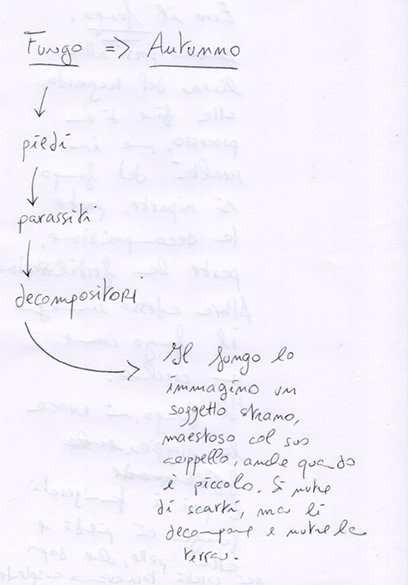 Fungo => Autunno
piedi
parassiti
decompositori
Il fungo lo
immagino un
soggetto strano,
maestoso col suo
cappello, anche quando
è piccolo. Si nutre
di scarti, ma li
decompone e nutre la
terra.